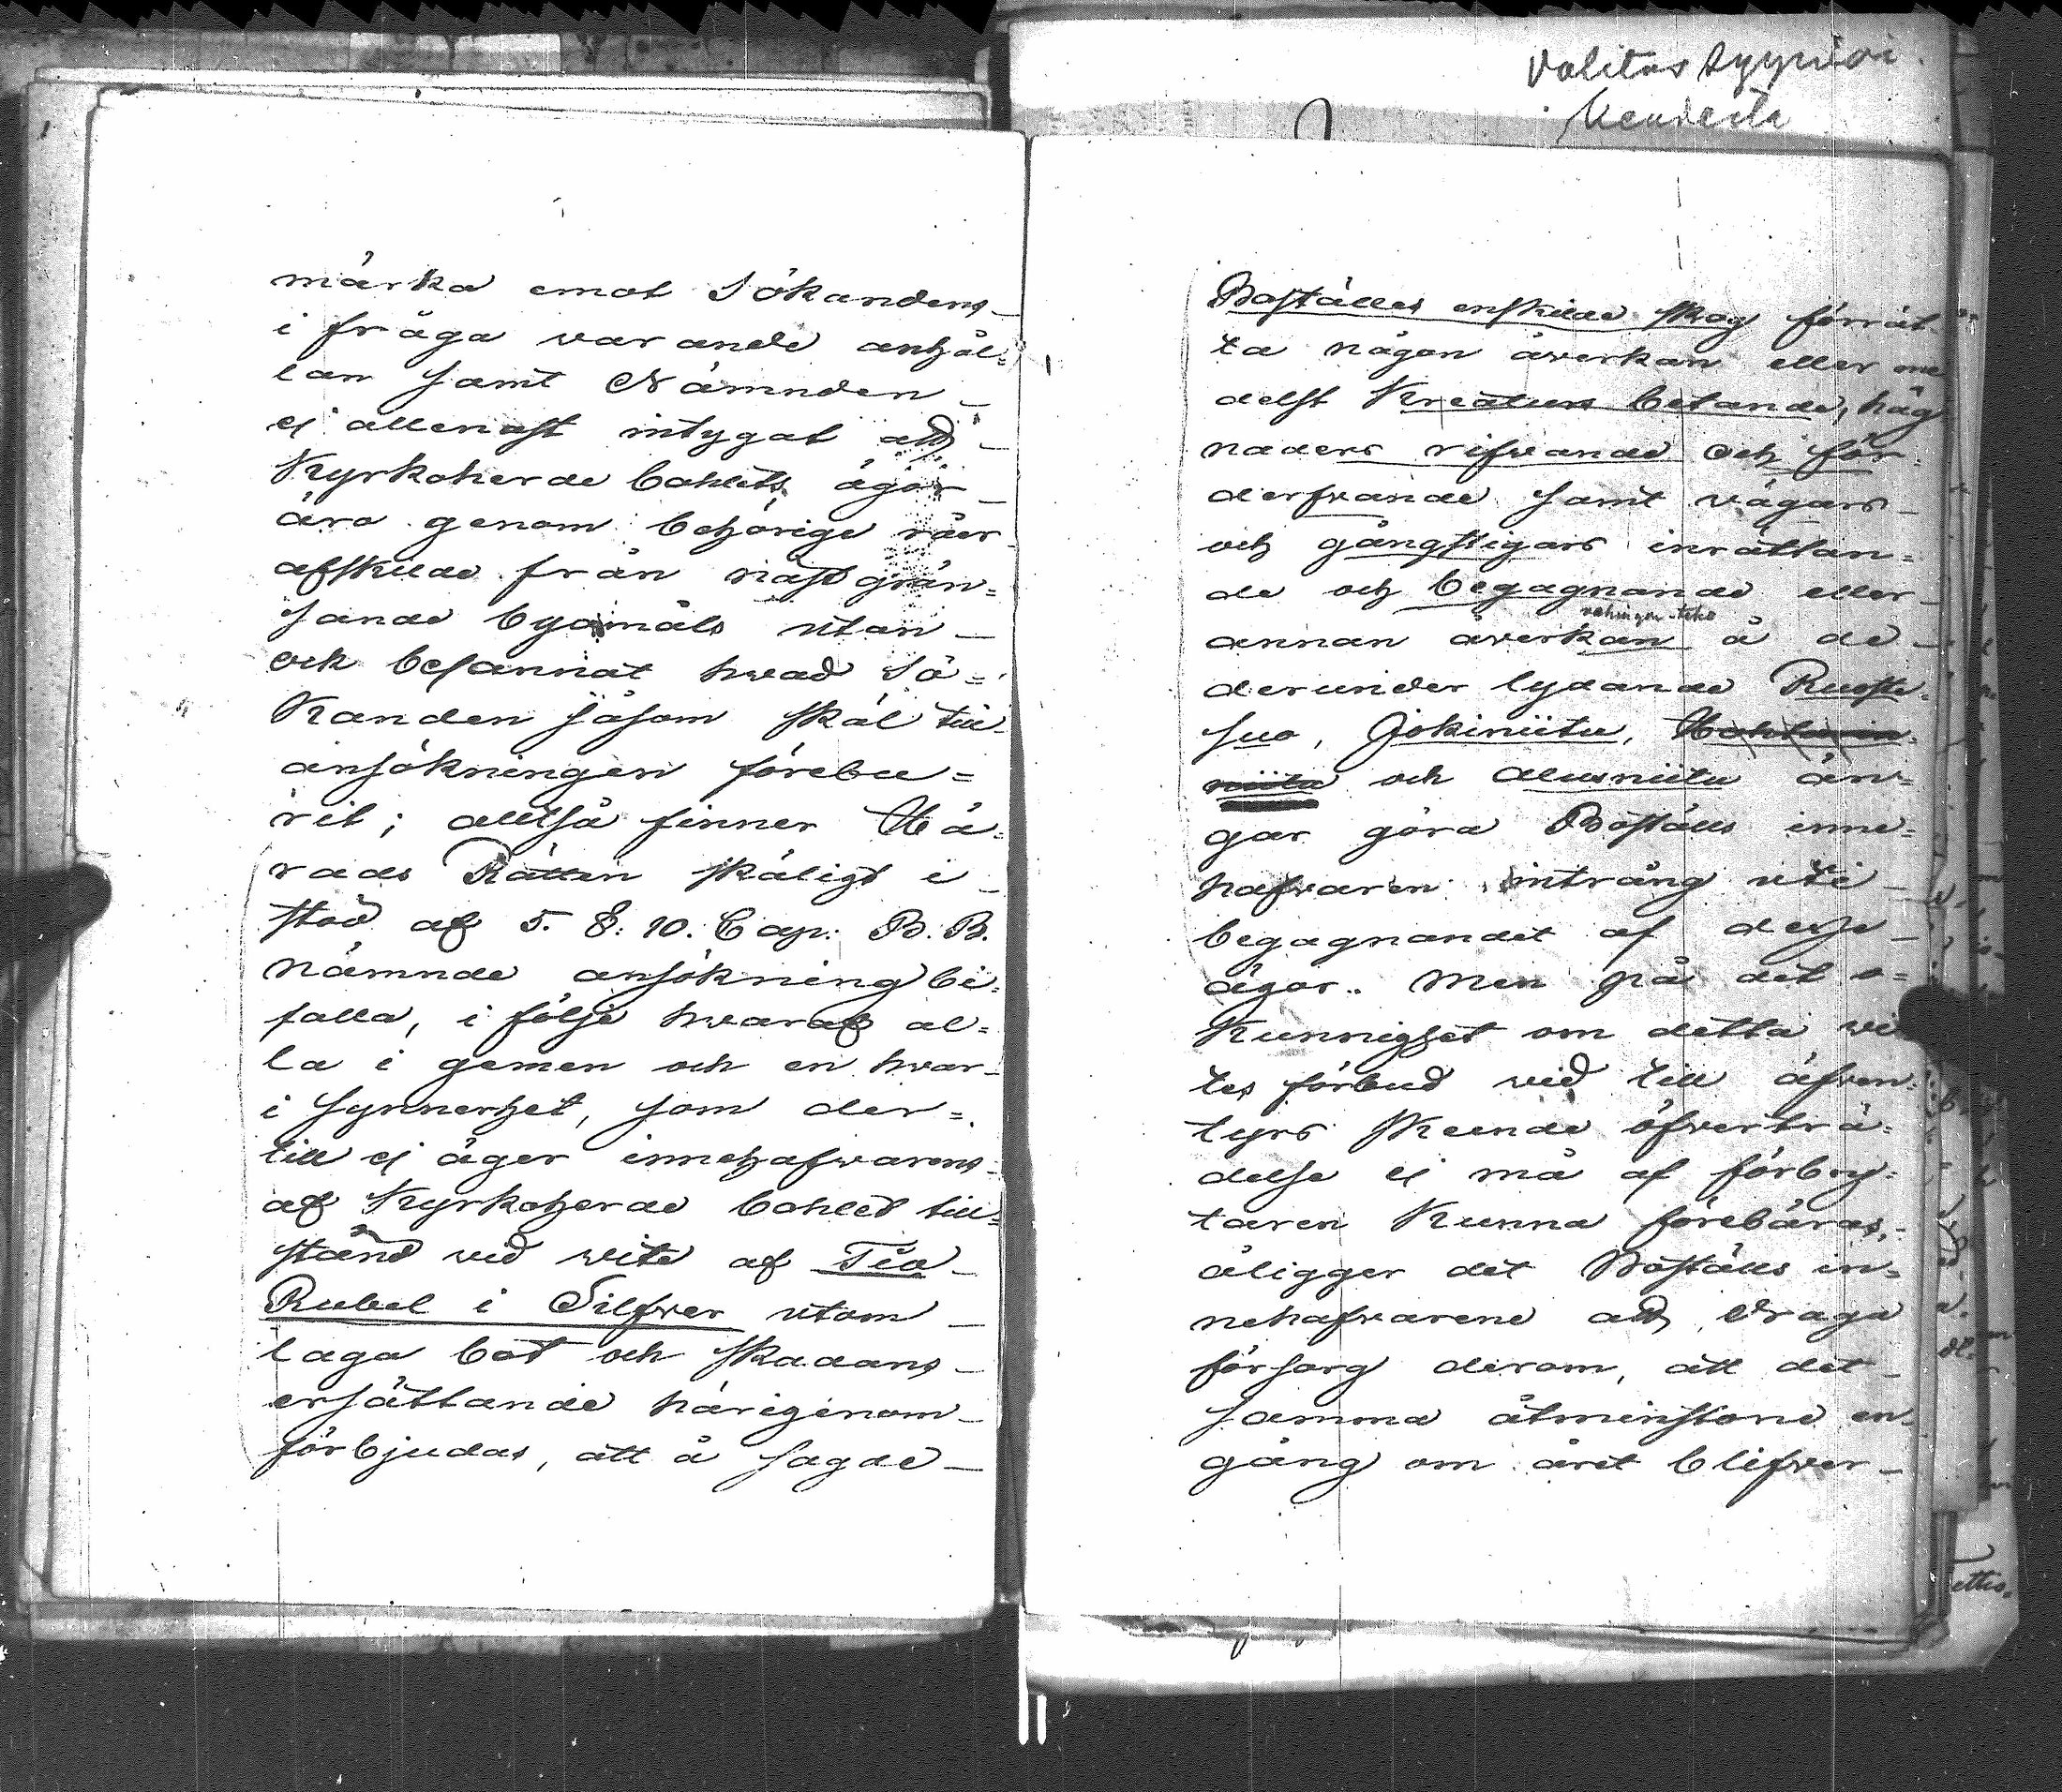 märka emot Sökandens
i fråga varande anhål=
lan samt Nämnden
ej allenast intygat att
Kyrkoherde bohlets ägor
äro genom behörige råer
afskilde från näst grän=
sande byamåls utan
ock besannat hwad Sö=
kanden såsom skäl till
ansökningen förebu=
rit; alltså finner Hä=
rads Rätten skäligt i
stöd af 5. §. 10. Cap. B. B.
nämnde ansökning bi=
falla, i följe hwaraf al=
la i gemen och en hwar
i synnerhet, som der=
till ej äger innehafwarens
af Kyrkoherde bohlet till=
stånd vid wite af Tio
Rubel i Silfwer utom
laga bot och skadans
ersättande härigenom
förbjudas, att å sagde
Valitus syyniöi
Boställes enskilde skog förrät
ta någon åwerkan eller me
delst Kreaturs betande, häg
naders rifwande och för=
derfwande samt vägars
och gångstigars inrättan=
de och begagnande eller
annan åverkan å de
derunder lydande Ruoste=
suo, Jokiniitu, Hahlanin
niitu och Alusniitu än=
gar göra Boställs inne=
hafvaren intrång uti
begagnandet af desse
ägor. Men på det o=
kunnighet om detta wi
tes förbud vid till äfwen=
tyrs skeende öfverträ=
delse ej må af förbry=
taren kunna förebäras,
åligger det Boställs in=
nehafvarene att draga
försorg derom, att det
samma åtminstone en
gång om året blifver